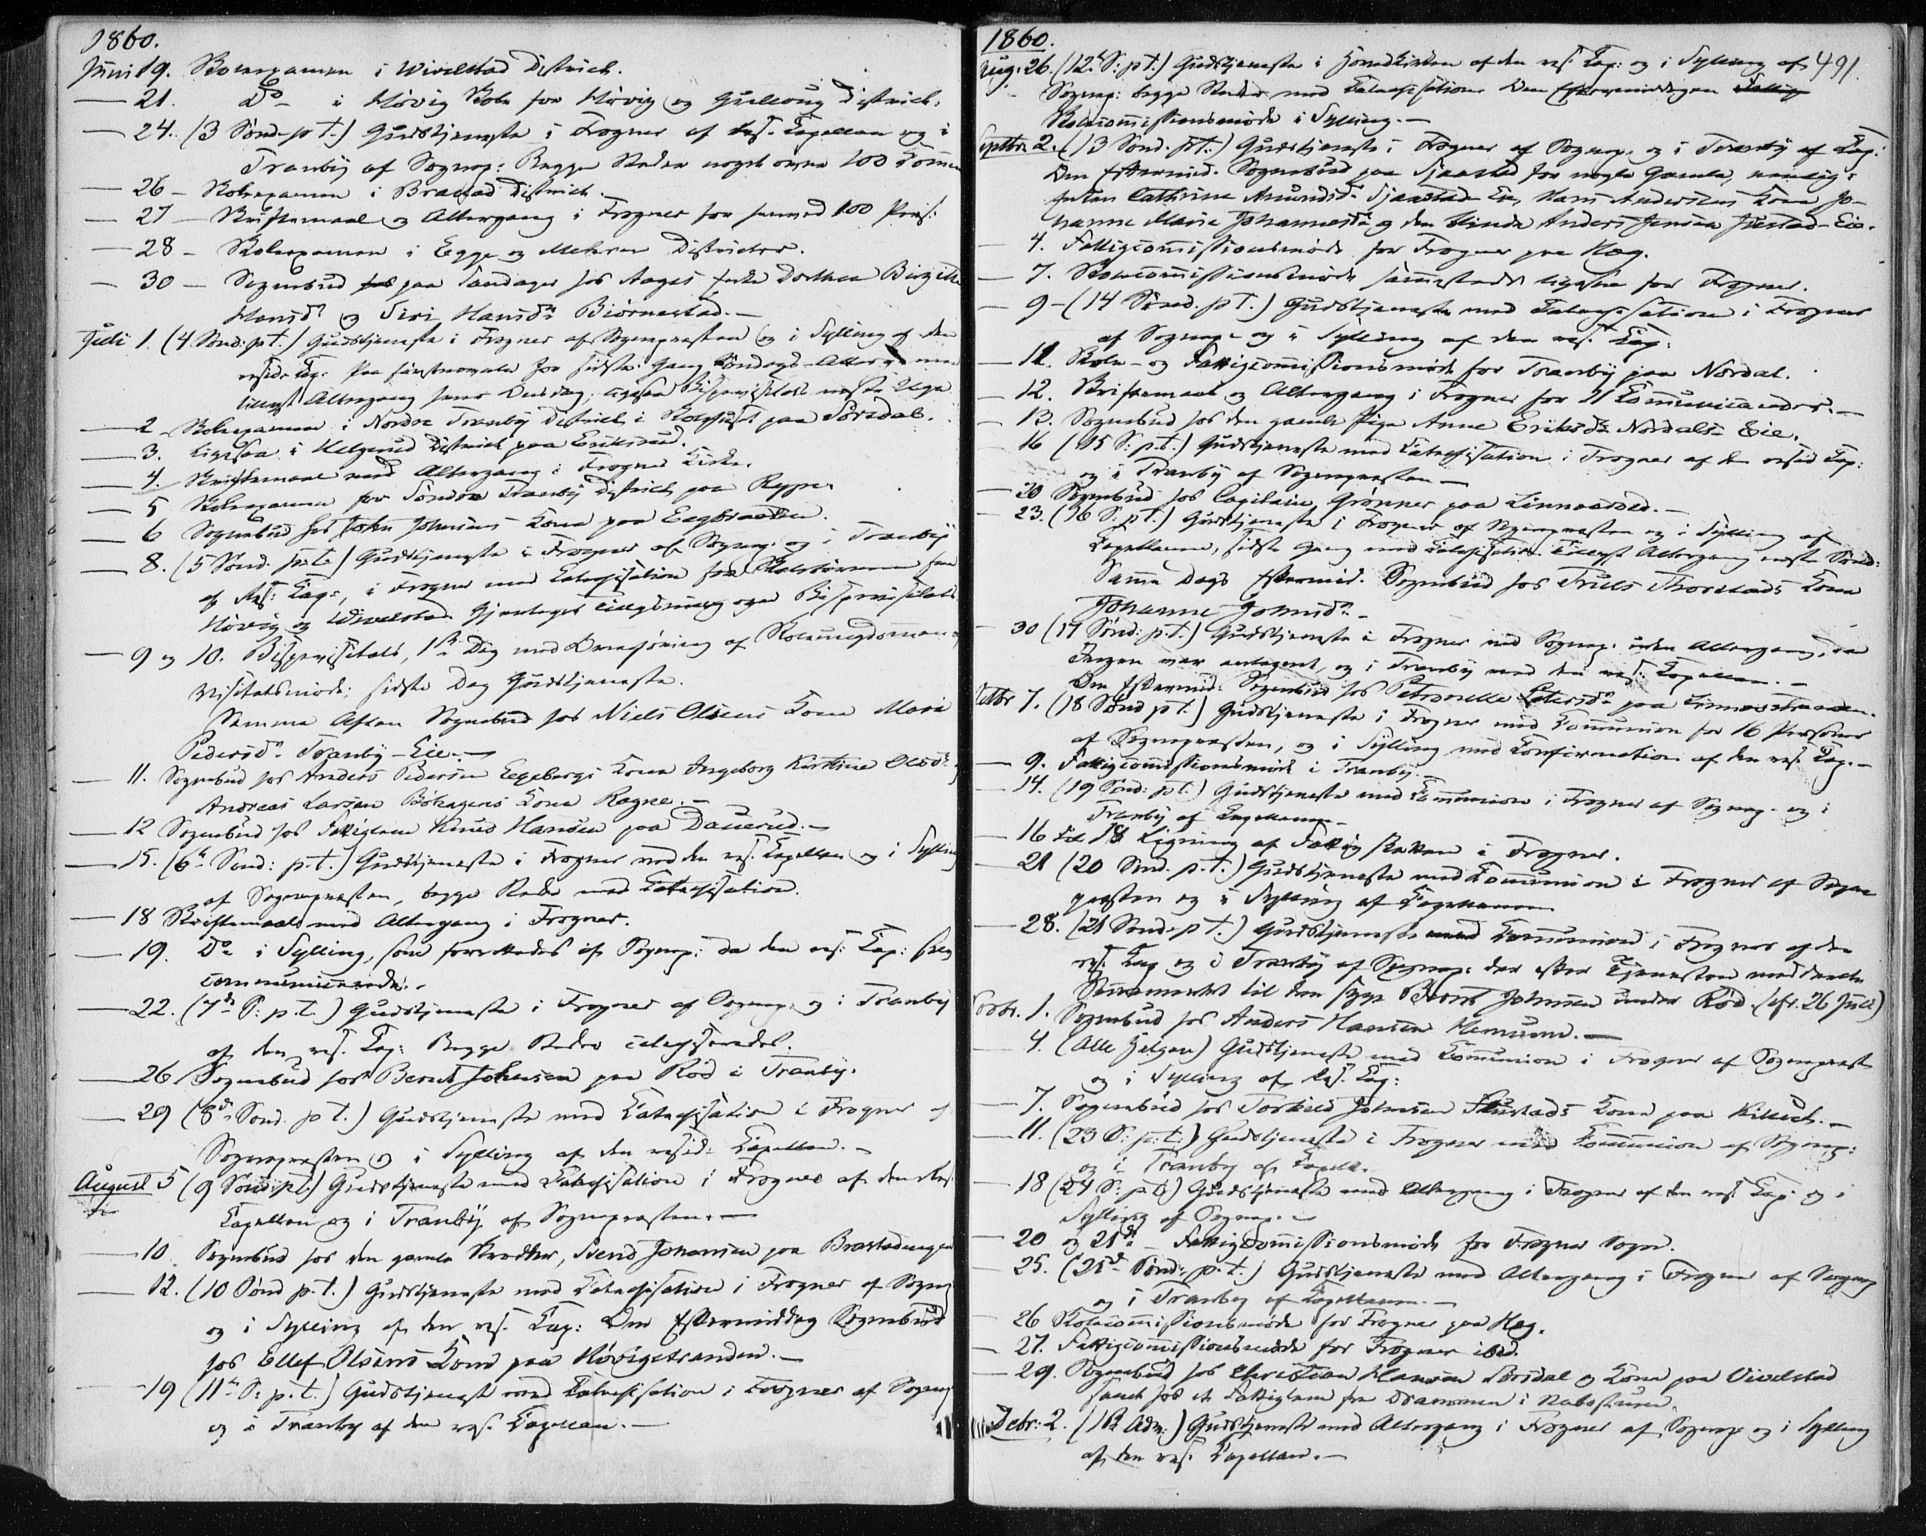 1860.
Juni 19. Skoleexamen i Wivelstad District.
— 21. Do i Høvig Skole for Høvig og Gulloug District.
— 24. (3 Sønd. p t.) Gudstjeneste i Frogner af res. Capellan og i
Tranby af Sognep: Begge Steder noget over 100
— 26 – Skoleexamen i District.
— 27 — Skriftemaal og Altergang i Frogner for 100 Pers:
— 28 – Skoleexamen i Egge og Districter.
— 30 — Sognebud paa hos Aages Enke Dorthea Birgitte
Hansdr og Siri Hansdr Biørnestad.—
Juli 1. (4 Sønd: p t.) Gudstjeneste i Frogner af Sognepræsten og i Sylling af den
resid. Cap. for sidste Gang Søndags-Alterg
tillyst Altergang hver Onsdag, ligesaa Bispevisitats næste Uge
— 2 Skoleexamen i Nordre Tranby District, i paa Sørsdal.
— 3. Ligesaa i Helgerud District paa Eriksrud.
— 4. Skriftemaal med Altergang i Frogner Kirke.
— 5 Skoleexamen for Søndre Tranby District paa
— 6 Sognebud hos John Johnsens Kone paa
— 8. (5 Sønd. p.t.) Gudstjeneste i Frogner af Sognep. og i Tranby
af Res: Cap:, i Frogner med Catechisation for Skolebørnene fra
Høvig og Wivelstad. Gjentaget Tillysning om Bispevisitats
— 9 og 10. Bispevisitats, 1ste Dag med Overhøring af Skoleungdommen,
Visitatsmøde; sidste Dag Gudstjeneste.
Samme Aften Sognebud hos Niels Olsens Kone Marie
Pedersdr. Tranby-Eie.—
— 11. Sognebud hos Anders Pedersen Eegebergs Kone Ingeborg Kirstine Olsdr,
Andreas Larsen Kone Ragne.—
— 12 Sognebud hos Fattiglem Knud Hansen paa Dauerud.—
— 15. (6te Sønd: p.t.) Gudstjeneste i Frogner ved den res. Capellan og i Sylling
af Sognepræsten, begge Steder med Catechisation.
— 18 Skriftemaal med Altergang i Frogner.
— 19. Do i Sylling, som forrettedes af Sognep: da den res: Cap: selv
communicerede.
— 22. (7de S: p.t.) Gudstjeneste i Frogner af Sognep. og i Tranby
af den res. Cap: Begge Steder catechiseredes.
— 26 Sognebud hos Bernt Johnsen paa Rød i Tranby.
— 29 (8de Sønd. p t.) Gudstjeneste med Catechisation i Frogner af
Sognepræsten og i Sylling af den resid. Capellan.—
August 5 (9 Sønd: p.t.) Gudstjeneste med Catechisation i Frogner af den Res.
Capellan og i Tranby af Sognepræsten.—
— 10. Sognebud hos den gamle Svend Johansen paa
— 12. (10 Sønd p.t.) Gudstjeneste med Catechisation i Frogner af Sognep
og i Sylling af den res. Cap: Den Eftermiddag Sognebud
hos Ellef Olsens Kone paa Høvigstranden.—
— 19 (11te S: p.t.) Gudstjeneste med Catechisation i Frogner af Sognep
og i Tranby af den res. Capellan.—
1860.
491.
Aug: 26. (12te S: p.t.) Gudstjeneste i af den res. Cap: og i Sylling af
Sognep: begge Steder med Catechisation. Den Eftermiddagen
Skolecommissionsmøde i Sylling.—
Septbr. 2. (13 Sønd. p.t.) Gudstjeneste i Frogner af Sognep. og i Tranby af Cap:
Den Eftermid. Sognebud paa Sjaastad for nogle Gamle, nemlig:
Enken Cathrine Amundsdr Sjaastad Eie, Hans Andersens Kone Jo-
hanne Marie Johannesdr og den blinde Anders Jensen -Eie.
— 4. Fattigcommissionsmøde for Frogner paa Hæg.
— 7. Skolecommissionsmøde sammesteds ligeledes for Frogner.
— 9 – (14 Sønd. p t.) Gudstjeneste med Catechisation i Frogner
af Sognep. og i Sylling af den res. Cap:
— 11. Skole- og Fattigcommissionsmøde for Tranby paa Nordal.
— 12. Skriftemaal og Altergang i Frogner for 21 Communicanter.—
— 13. Sognebud hos den gamle Pige Anne Eriksdr Nordals Eie.
— 16 (15 S: p.t.) Gudstjeneste med Catechisation i Frogner af den resid Cap:
og i Tranby af Sognepræsten—
— 20 Sognebud hos Capitain Grønner paa Linnæstad.—
— 23. (16 S: p.t.) Gudstjeneste i Frogner af Sognepræsten og i Sylling af
Capellanen, sidste Gang med Catechisation. Tillyst Altergang næste Sønd:
Samme Dags Eftermid. Sognebud hos Truls Thorstads Kone
Johanne
— 30 (17 Sønd: p.t.) Gudstjeneste i Frogner ved Sognep. uden Altergang, da
Ingen var antegnet, og i Tranby ved den res: Capellan.—
Den Eftermid: Sognebud hos Petronelle Petersdr paa Linnæsstranden.
Octbr 7. (18 Sønd p t.) Gudstjeneste i Frogner med Communion for 16 Personer
af Sognepræsten, og i Sylling med Confirmation af den res. Cap.—
— 9. Fattigcommissionsmøde i Tranby.—
— 14. (19 Sønd: p t.) Gudstjeneste med Communion i Frogner af Sognep. og i
Tranby af Capellanen—
— 16 til 18 Ligning af Fattigskatten i Frogner.
— 21 (20 Sønd. p.t.) Gudstjeneste med Communion i Frogner af Sogne
præsten og i Sylling af Capellanen
— 28. (21 Sønd. p t.) Gudstjeneste med Communion i Frogner af den
res. Cap og i Tranby af Sognep: der efter Tjenesten meddeelte
Sacramentet til den syge Bernt Johnsen under Rød (cfr. 26 Juli)
Novbr. 1. Sognebud hos Anders Hansen —
4. (Alle Helgen) Gudstjeneste med Communion i Frogner af Sognepræst
og i Sylling af Res. Cap:
— 7. Sognebud hos Torkild Johnsen Kone paa —
— 11. (23 S: p.t.) Gudstjeneste i Frogner med Communion af Sognep:
og i Tranby af Capell.
— 18 (24 S: p t) Gudstjeneste med Altergang i Frogner af den res. Cap. og i
Sylling af Sognep.—
— 20 og 21de Fattigcommissionsmøde for Frogner Sogn.
— 25. (25de Sønd: p.t.) Gudstjeneste med Altergang i Frogner af Sognep
og i Tranby af Capellanen.—
— 26 Skolecommissionsmøde for Frogner paa Hæg.
— 27. Fattigcommissionsmøde for Frogner ibid.
— 29. Sognebud hos Christian Hansen Sørsdal og Kone paa Vivelstad
samt hos et Fattiglem fra Drammen i Nabostuen.
Decbr: 2. (1ste Adv:) Gudstjeneste med Altergang i Frogner af Sognep og i Sylling
af den res. Capellan.—